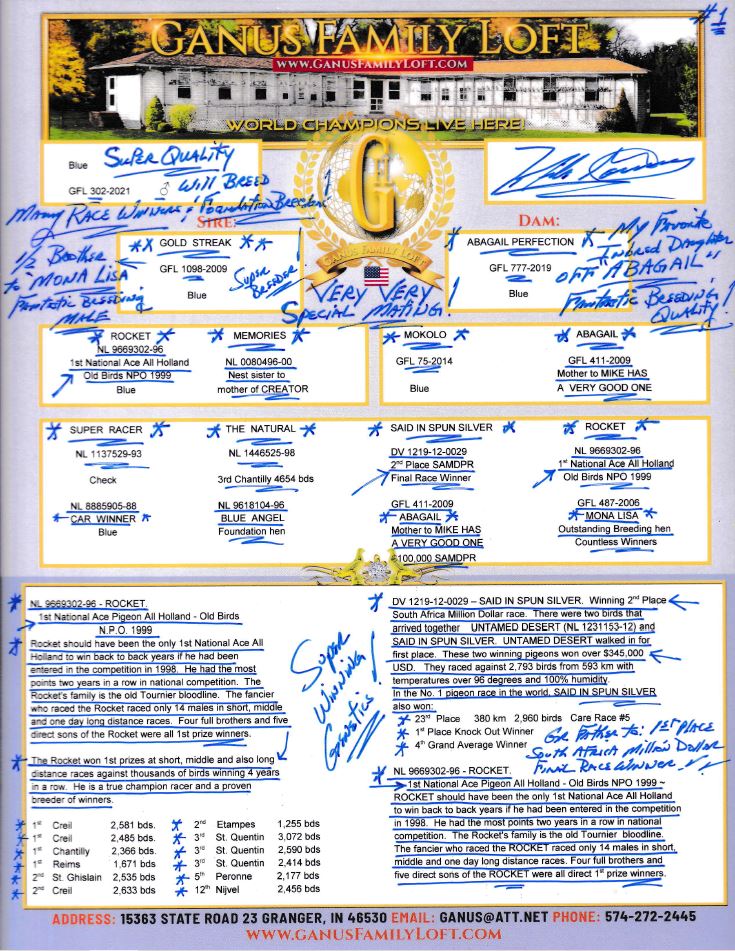 #1
GANUS FAMILY LOFT
WWW.GANUSFAMILYLOFT.COM
WORLD CHAMPIONS LIVE HERE!
Blue
SUPER QUALITY
GFL 302-2021 ♂ WILL BREED
MANY RACE WINNERS & FOUNDATION BREEDERS!
SIRE:
DAM:
G
GANUS FAMILY LOFT
GOLD STREAK
GFL 1098-2009
Blue
SUPER BREEDER!
1/2 BROTHER
to "MONA LISA
FANTASTIC BREEDING
MALE
VERY VERY
SPECIAL MATING!
ABAGAIL PERFECTION
GFL 777-2019
Blue
MY FAVORITE
INBRED DAUGHTER
OFF "ABAGAIL"
FANTASTIC BREEDING
QUALITY!
ROCKET
NL 9669302-96
1st National Ace All Holland
Old Birds NPO 1999
Blue
MEMORIES
NL 0080496-00
Nest sister to
mother of CREATOR
MOKOLO
GFL 75-2014
Blue
ABAGAIL
GFL 411-2009
Mother to MIKE HAS
A VERY GOOD ONE
SUPER RACER
NL 1137529-93
Check
NL 8885905-88
CAR WINNER
Blue
THE NATURAL
NL 1446525-98
3rd Chantilly 4654 bds
NL 9618104-96
BLUE ANGEL
Foundation hen
SAID IN SPUN SILVER
DV 1219-12-0029
2nd Place SAMDPR
Final Race Winner
GFL 411-2009
ABAGAIL
Mother to MIKE HAS
A VERY GOOD ONE
$100,000 SAMDPR
ROCKET
NL 9669302-96
1st National Ace All Holland
Old Birds NPO 1999
GFL 487-2006
MONA LISA
Outstanding Breeding hen
Countless Winners
NL 9669302-96 - ROCKET.
1st National Ace Pigeon All Holland - Old Birds
N.P.O. 1999
Rocket should have been the only 1st National Ace All
Holland to win back to back years if he had been
entered in the competition in 1998. He had the most
points two years in a row in national competition. The
Rocket's family is the old Tournier bloodline. The fancier
who raced the Rocket raced only 14 males in short, middle
and one day long distance races. Four full brothers and five
direct sons of the Rocket were all 1st prize winners.
The Rocket won 1st prizes at short, middle and also long
distance races against thousands of birds winning 4 years
in a row. He is a true champion racer and a proven
breeder of winners.
1st Creil 2,581 bds. 2nd Etampes 1,255 bds
1st Creil 2,485 bds 3rd St. Quentin 3,072 bds
1st Chantilly 2,366 bds. 3rd St. Quentin 2,590 bds
1st Reims 1,671 bds 3rd St. Quentin 2,414 bds
2nd St. Ghislain 2,535 bds 5th Peronne 2,177 bds
2nd Creil 2,633 bds 12th Nijvel 2,456 bds
SUPER
WINNING
GENETICS!
DV 1219-12-0029 – SAID IN SPUN SILVER. Winning 2nd Place
South Africa Million Dollar race. There were two birds that
arrived together UNTAMED DESERT (NL 1231153-12) and
SAID IN SPUN SILVER. UNTAMED DESERT walked in for
first place. These two winning pigeons won over $345,000
USD. They raced against 2,793 birds from 593 km with
temperatures over 96 degrees and 100% humidity.
In the No. 1 pigeon race in the world, SAID IN SPUN SILVER
also won:
23rd Place 380 km 2,960 birds Care Race #5
1st Place Knock Out Winner
4th Grand Average Winner
GR FATHER TO: 1ST PLACE
SOUTH AFRICA MILLION DOLLAR
FINAL RACE WINNER!!
NL 9669302-96 - ROCKET.
1st National Ace Pigeon All Holland - Old Birds NPO 1999 ~
ROCKET should have been the only 1st National Ace All Holland
to win back to back years if he had been entered in the competition
in 1998. He had the most points two years in a row in national
competition. The Rocket's family is the old Tournier bloodline.
The fancier who raced the ROCKET raced only 14 males in short,
middle and one day long distance races. Four full brothers and
five direct sons of the ROCKET were all direct 1st prize winners.
ADDRESS: 15363 STATE ROAD 23 GRANGER, IN 46530 EMAIL: GANUS@ATT.NET PHONE: 574-272-2445
WWW.GANUSFAMILYLOFT.COM